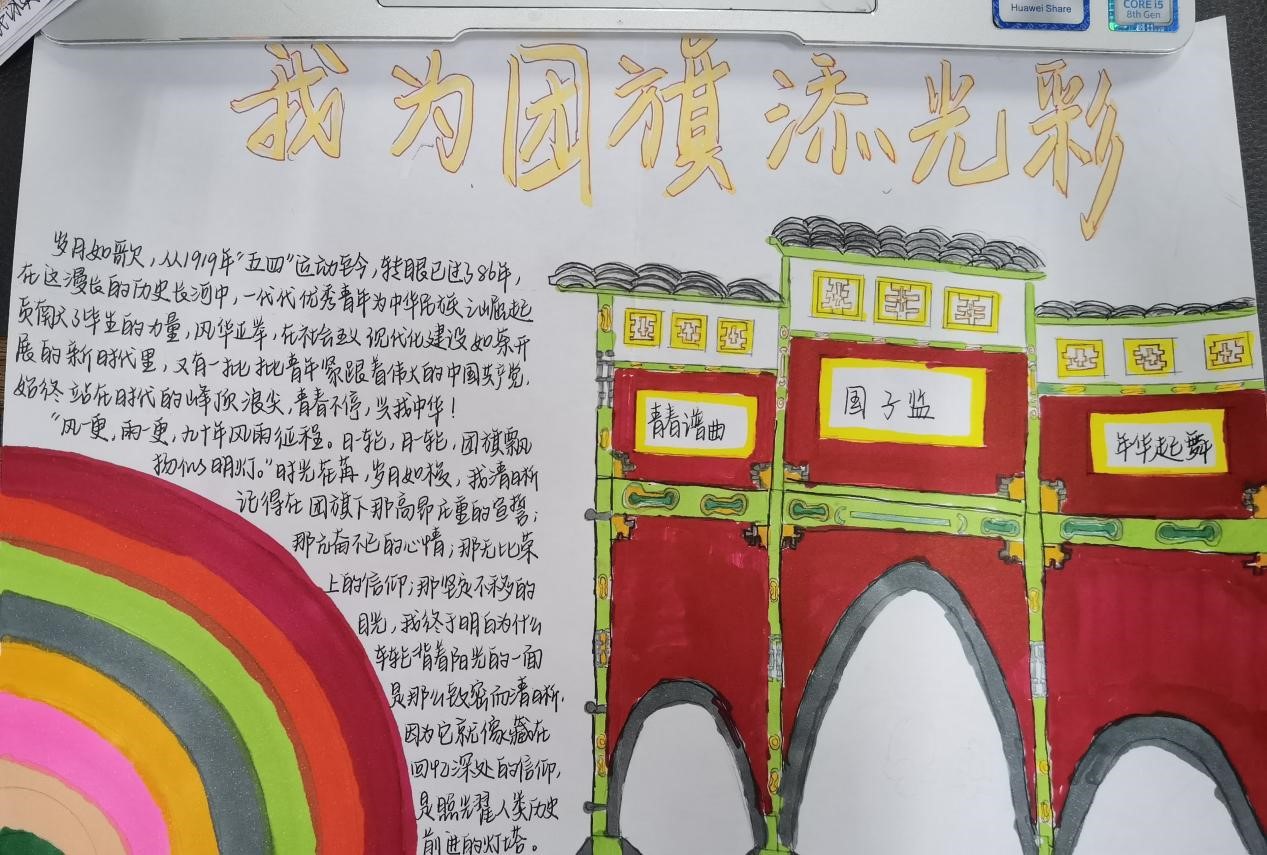 Huawei Share
CORE i5
8th Gen
我为团旗添光彩
岁月如歌,从1919年“五四”运动至今,转眼已过了86年,
在这漫长的历史长河中,一代代优秀青年为中华民族之崛起
贡献了毕生的力量,风华正举,在社会主义现代化建设如东开
展的新时代里,又有一批批青年紧跟着伟大的中国共产党,
始终站在时代的峰顶浪尖,青春不停,兴我中华!
“风一更,雨一更,九十年风雨征程。日一轮,月一轮,团旗飘
扬似明灯。”时光荏苒,岁月如梭,我清晰
记得在团旗下那高昂庄重的宣誓;
那亢奋不已的心情;那无比荣
上的信仰;那坚定不移的
目光,我终于明白为什么
年轮背着阳光的一面
是那么致密而清晰,
因为它就像藏在
回忆深处的信仰,
是照光耀人类历史
前进的灯塔。
青春谱曲
国子监
年华起舞